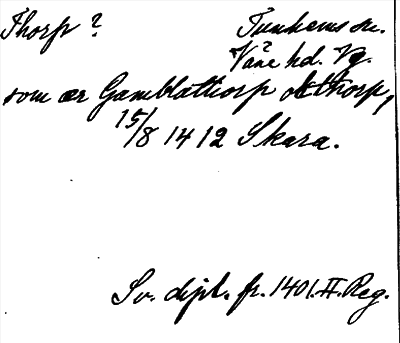 Thorp? Tunhems sn.
Väne hd. Vg.
som ær Gamblathorp okthorp,
15/8 1412 Skara.
Sv. dipl. fr. 1401. II. Reg.